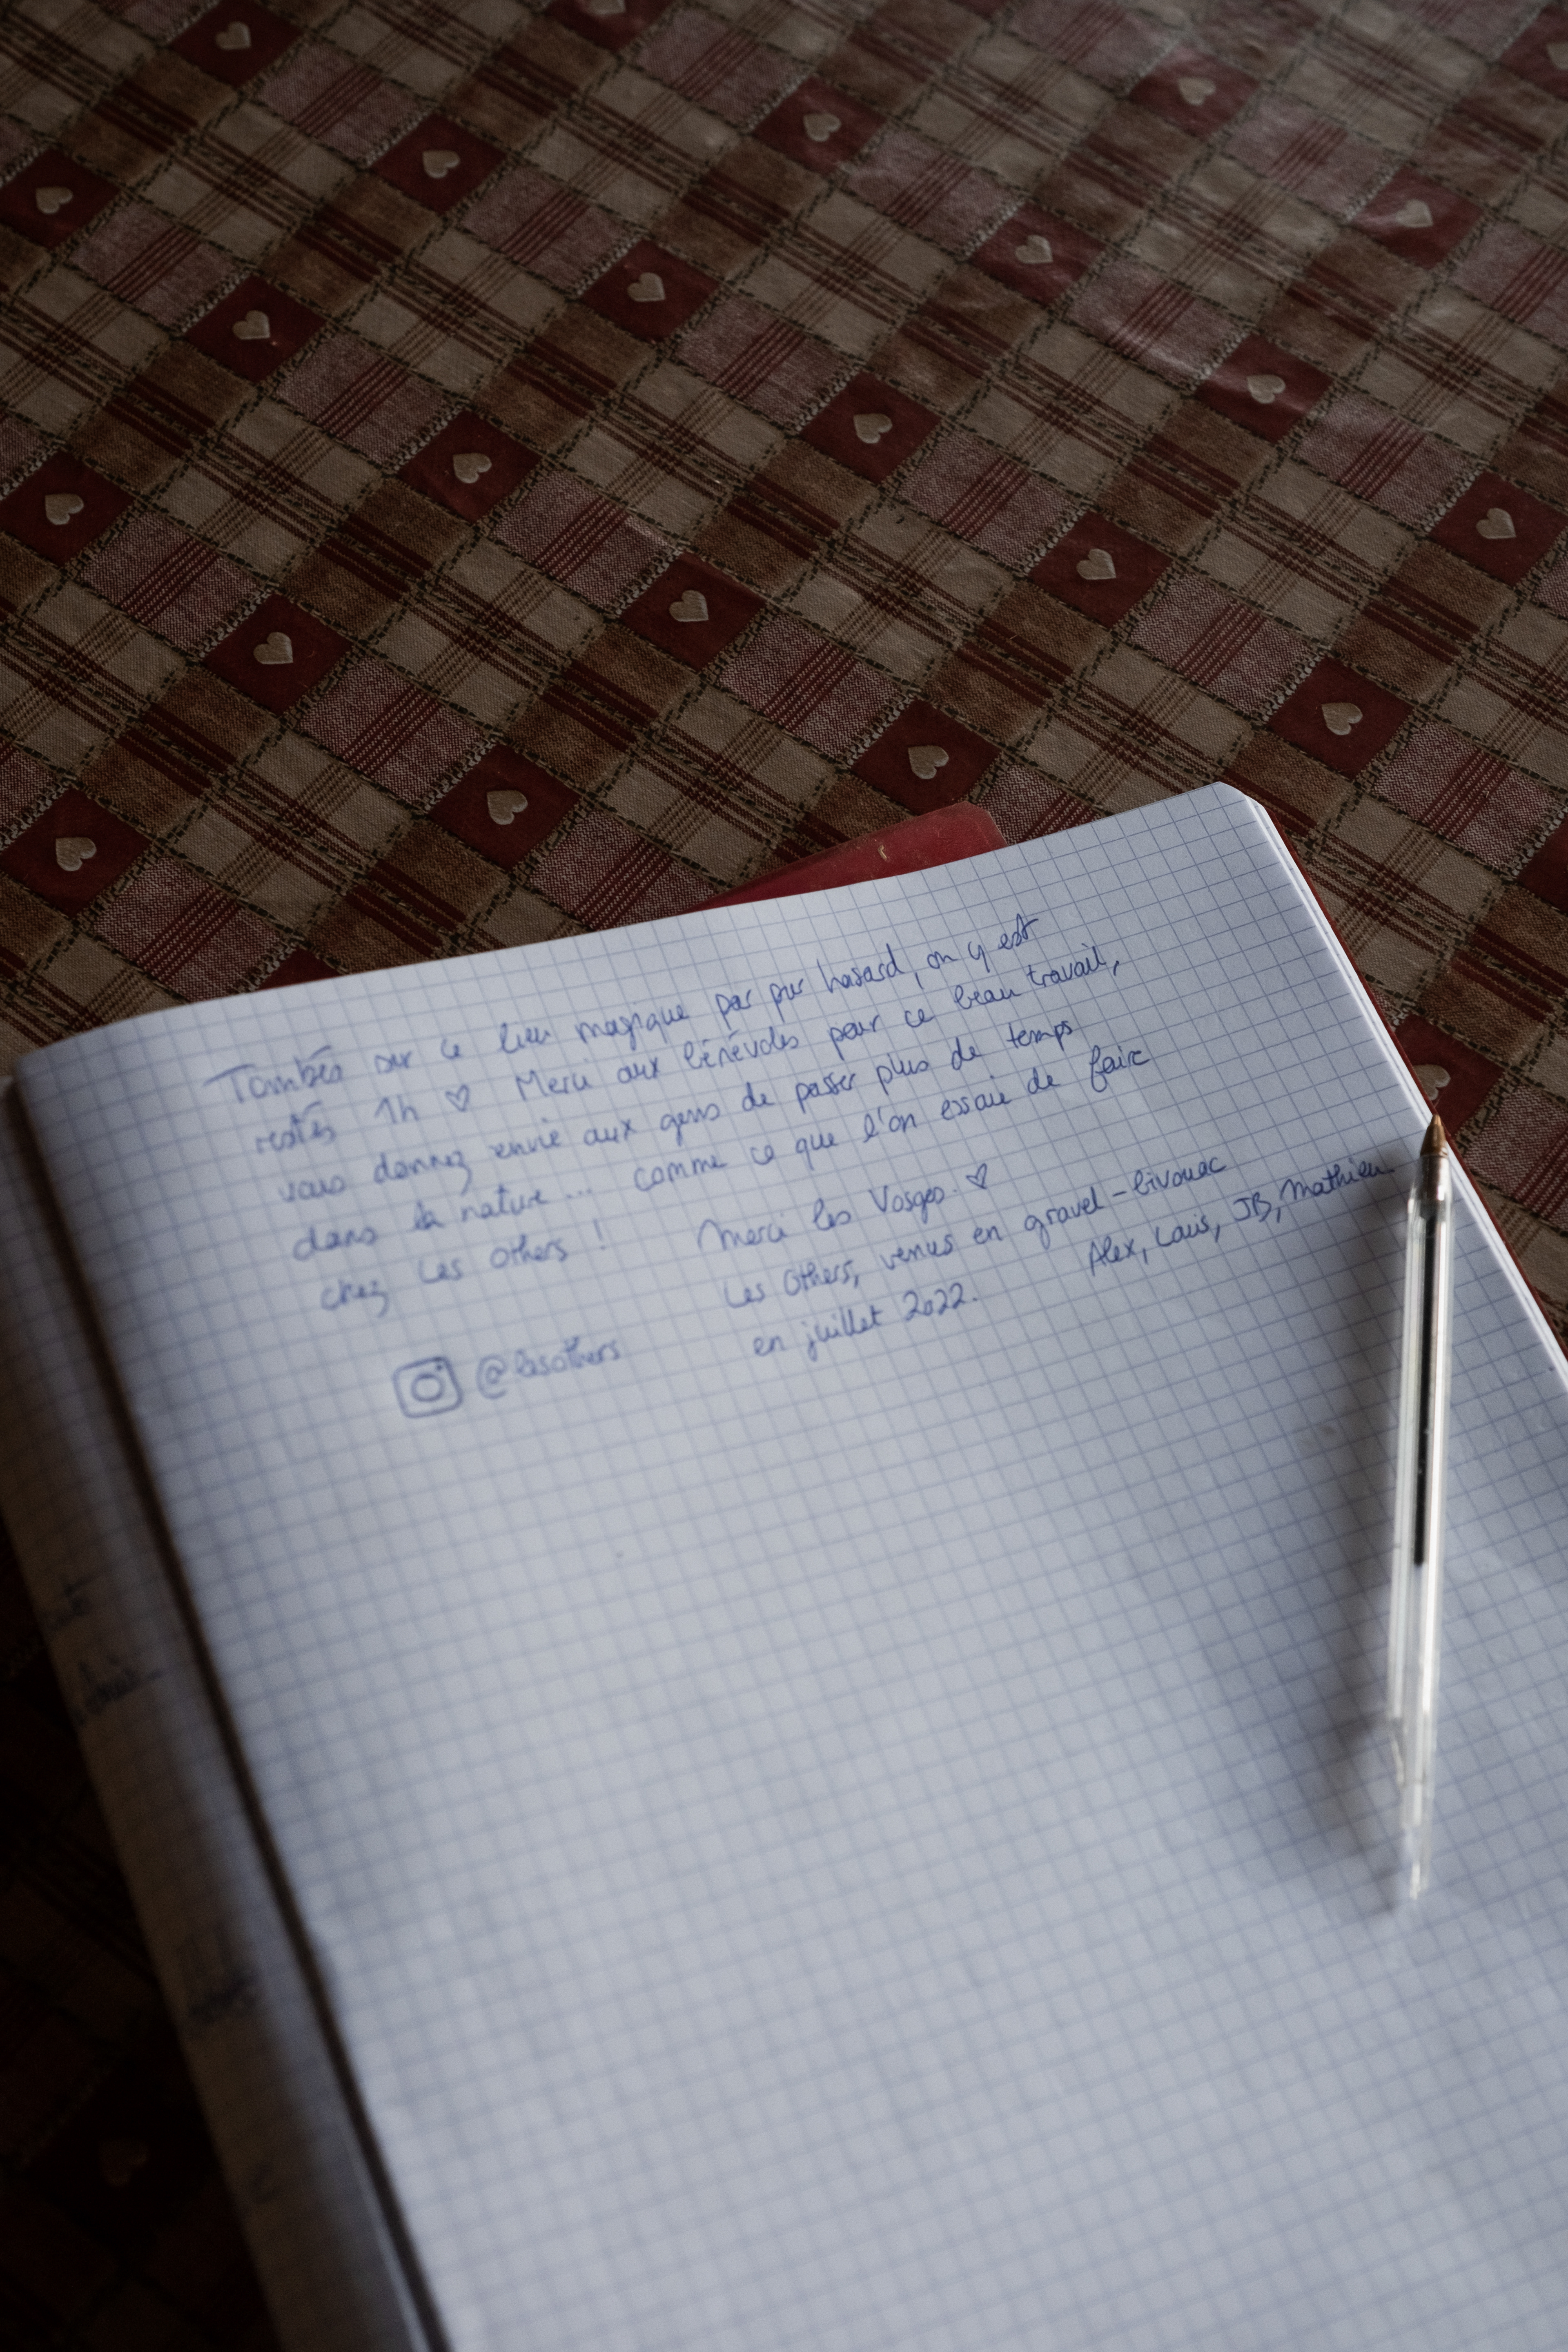 Tombés sur ce lieu magique par pur hasard, on y est
restés 1h ♡ Merci aux bénévoles pour ce beau travail,
vous donnez envie aux gens de passer plus de temps
dans la nature... comme ce que l'on essaie de faire
chez Les Others !
Merci les Vosges. ♡
Les Others, venus en gravel-bivouac
en juillet 2022.
Alex, Louis, JB, Mathieu
@lesothers